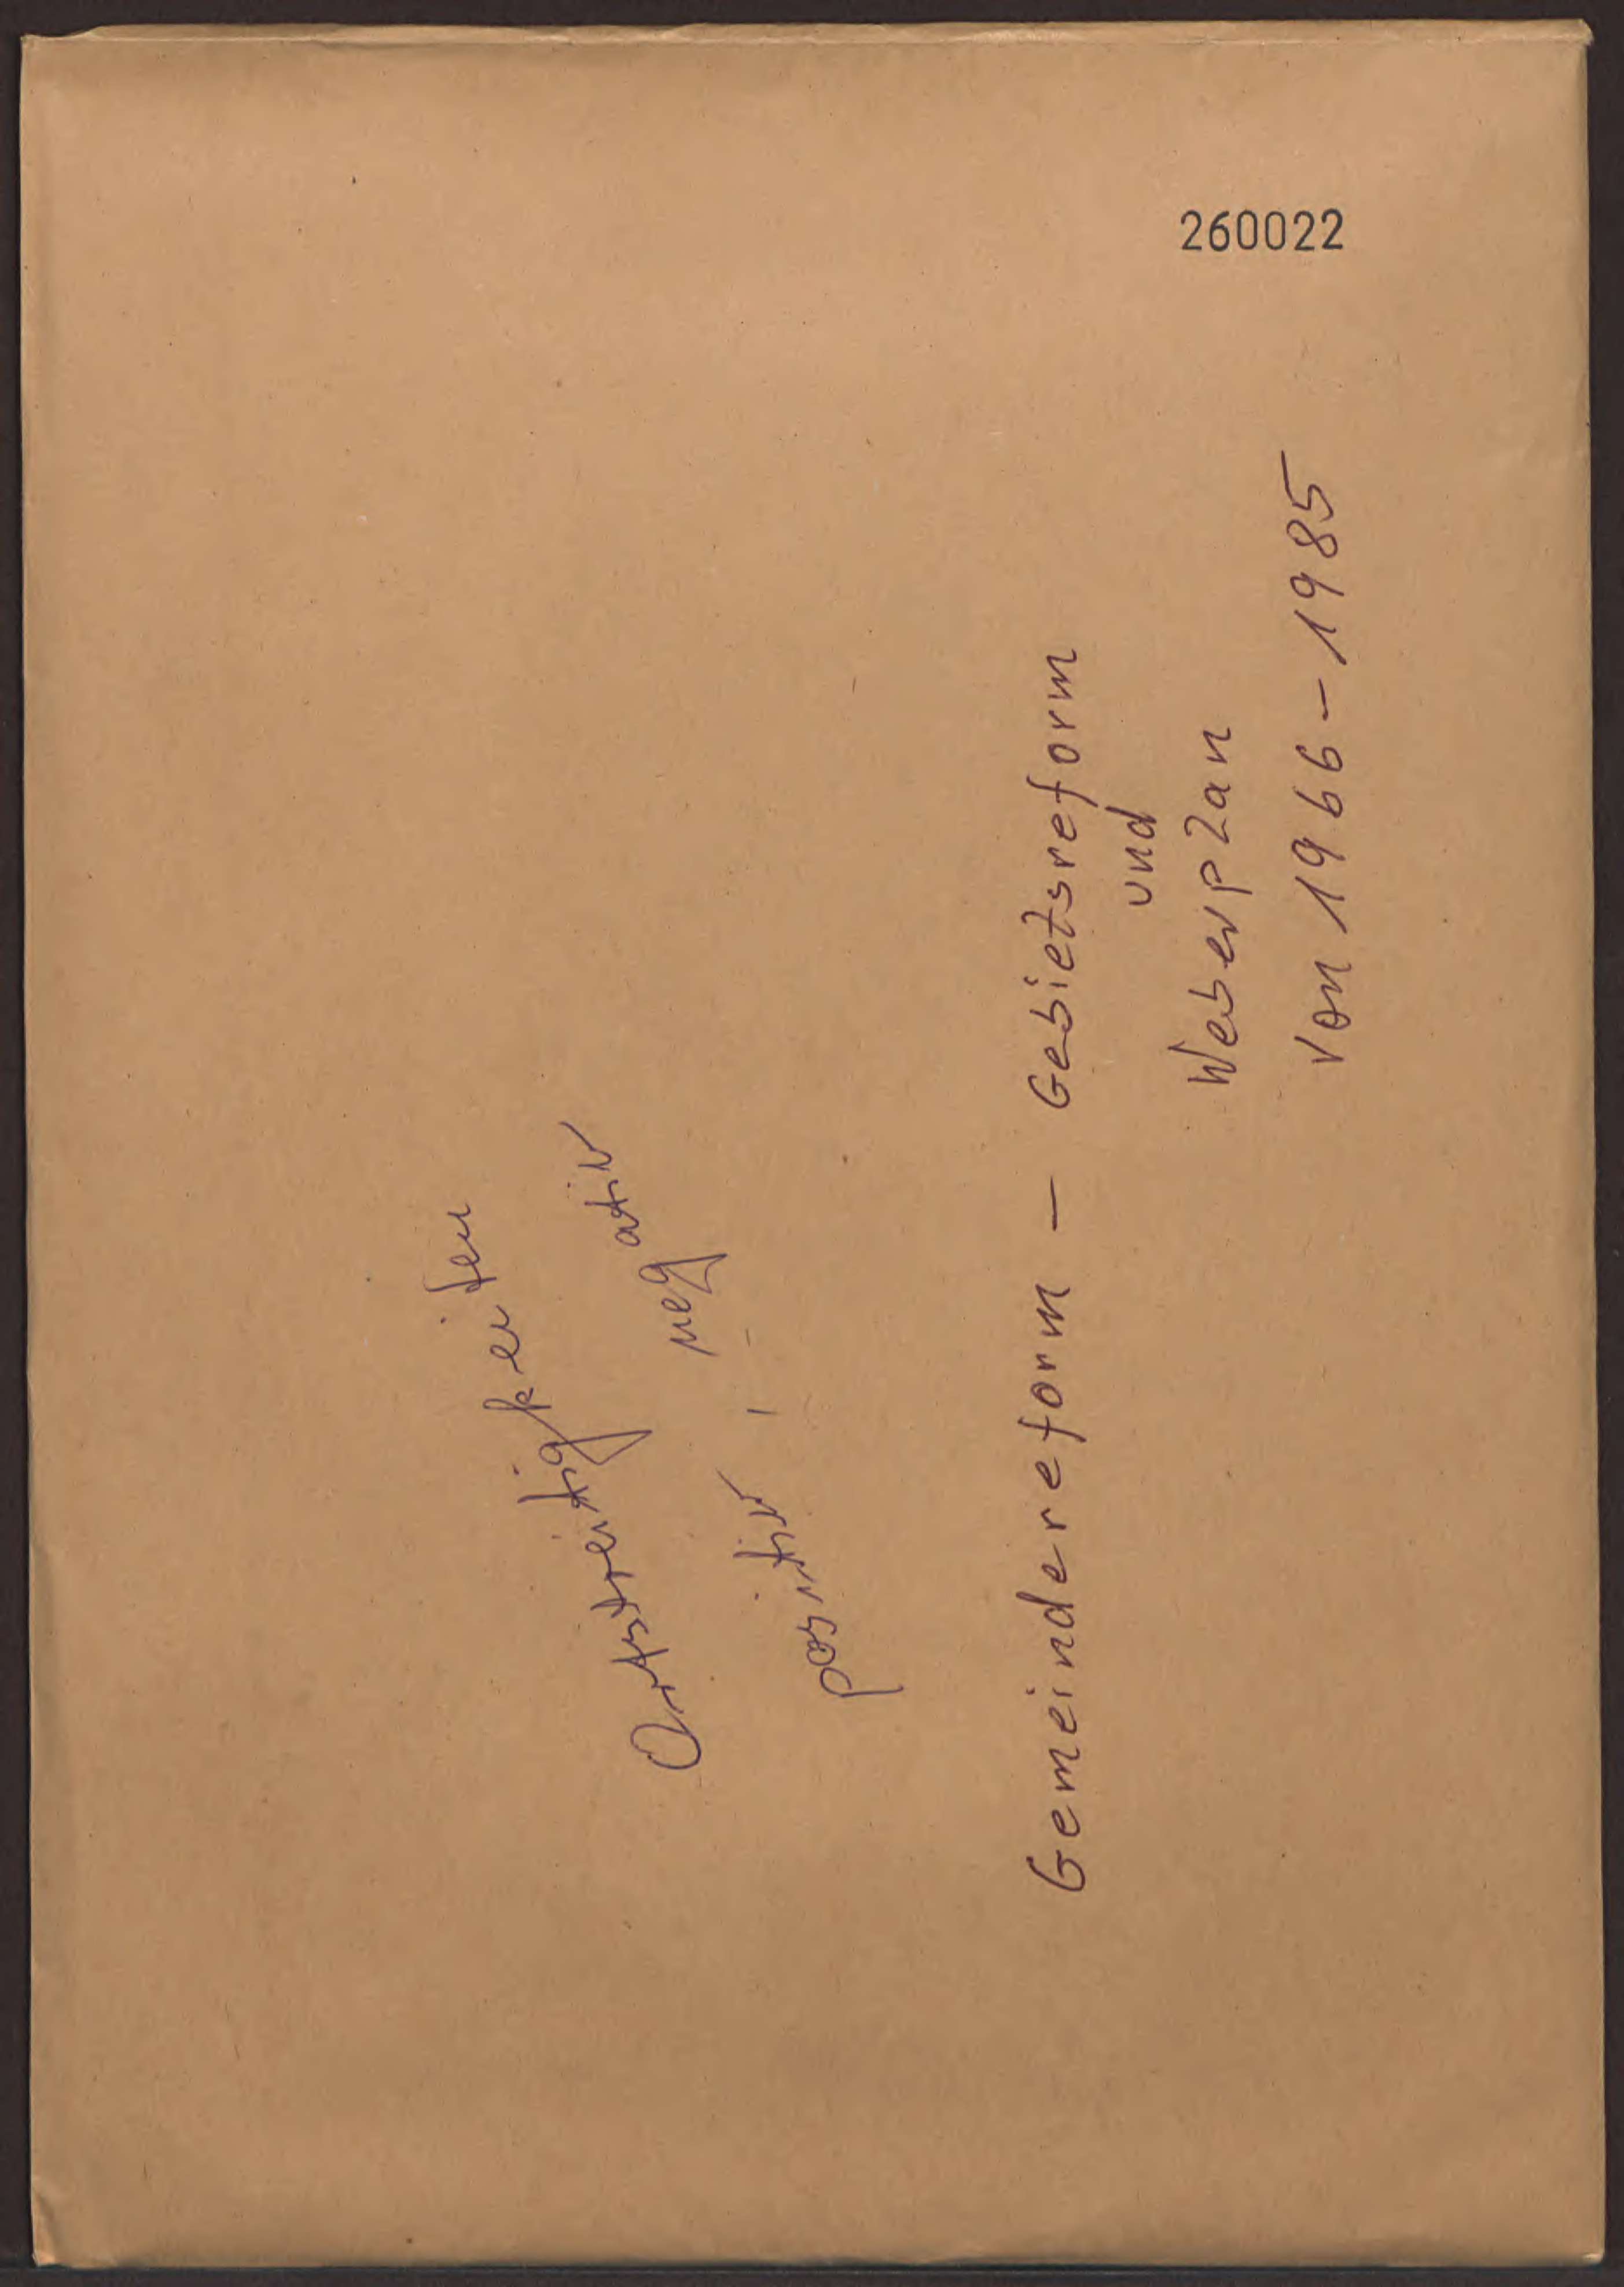 260022
Ortsstreitigkeiten
positiv - negativ
Gemeindereform - Gebietsreform
und
Weberplan
von 1966 - 1985